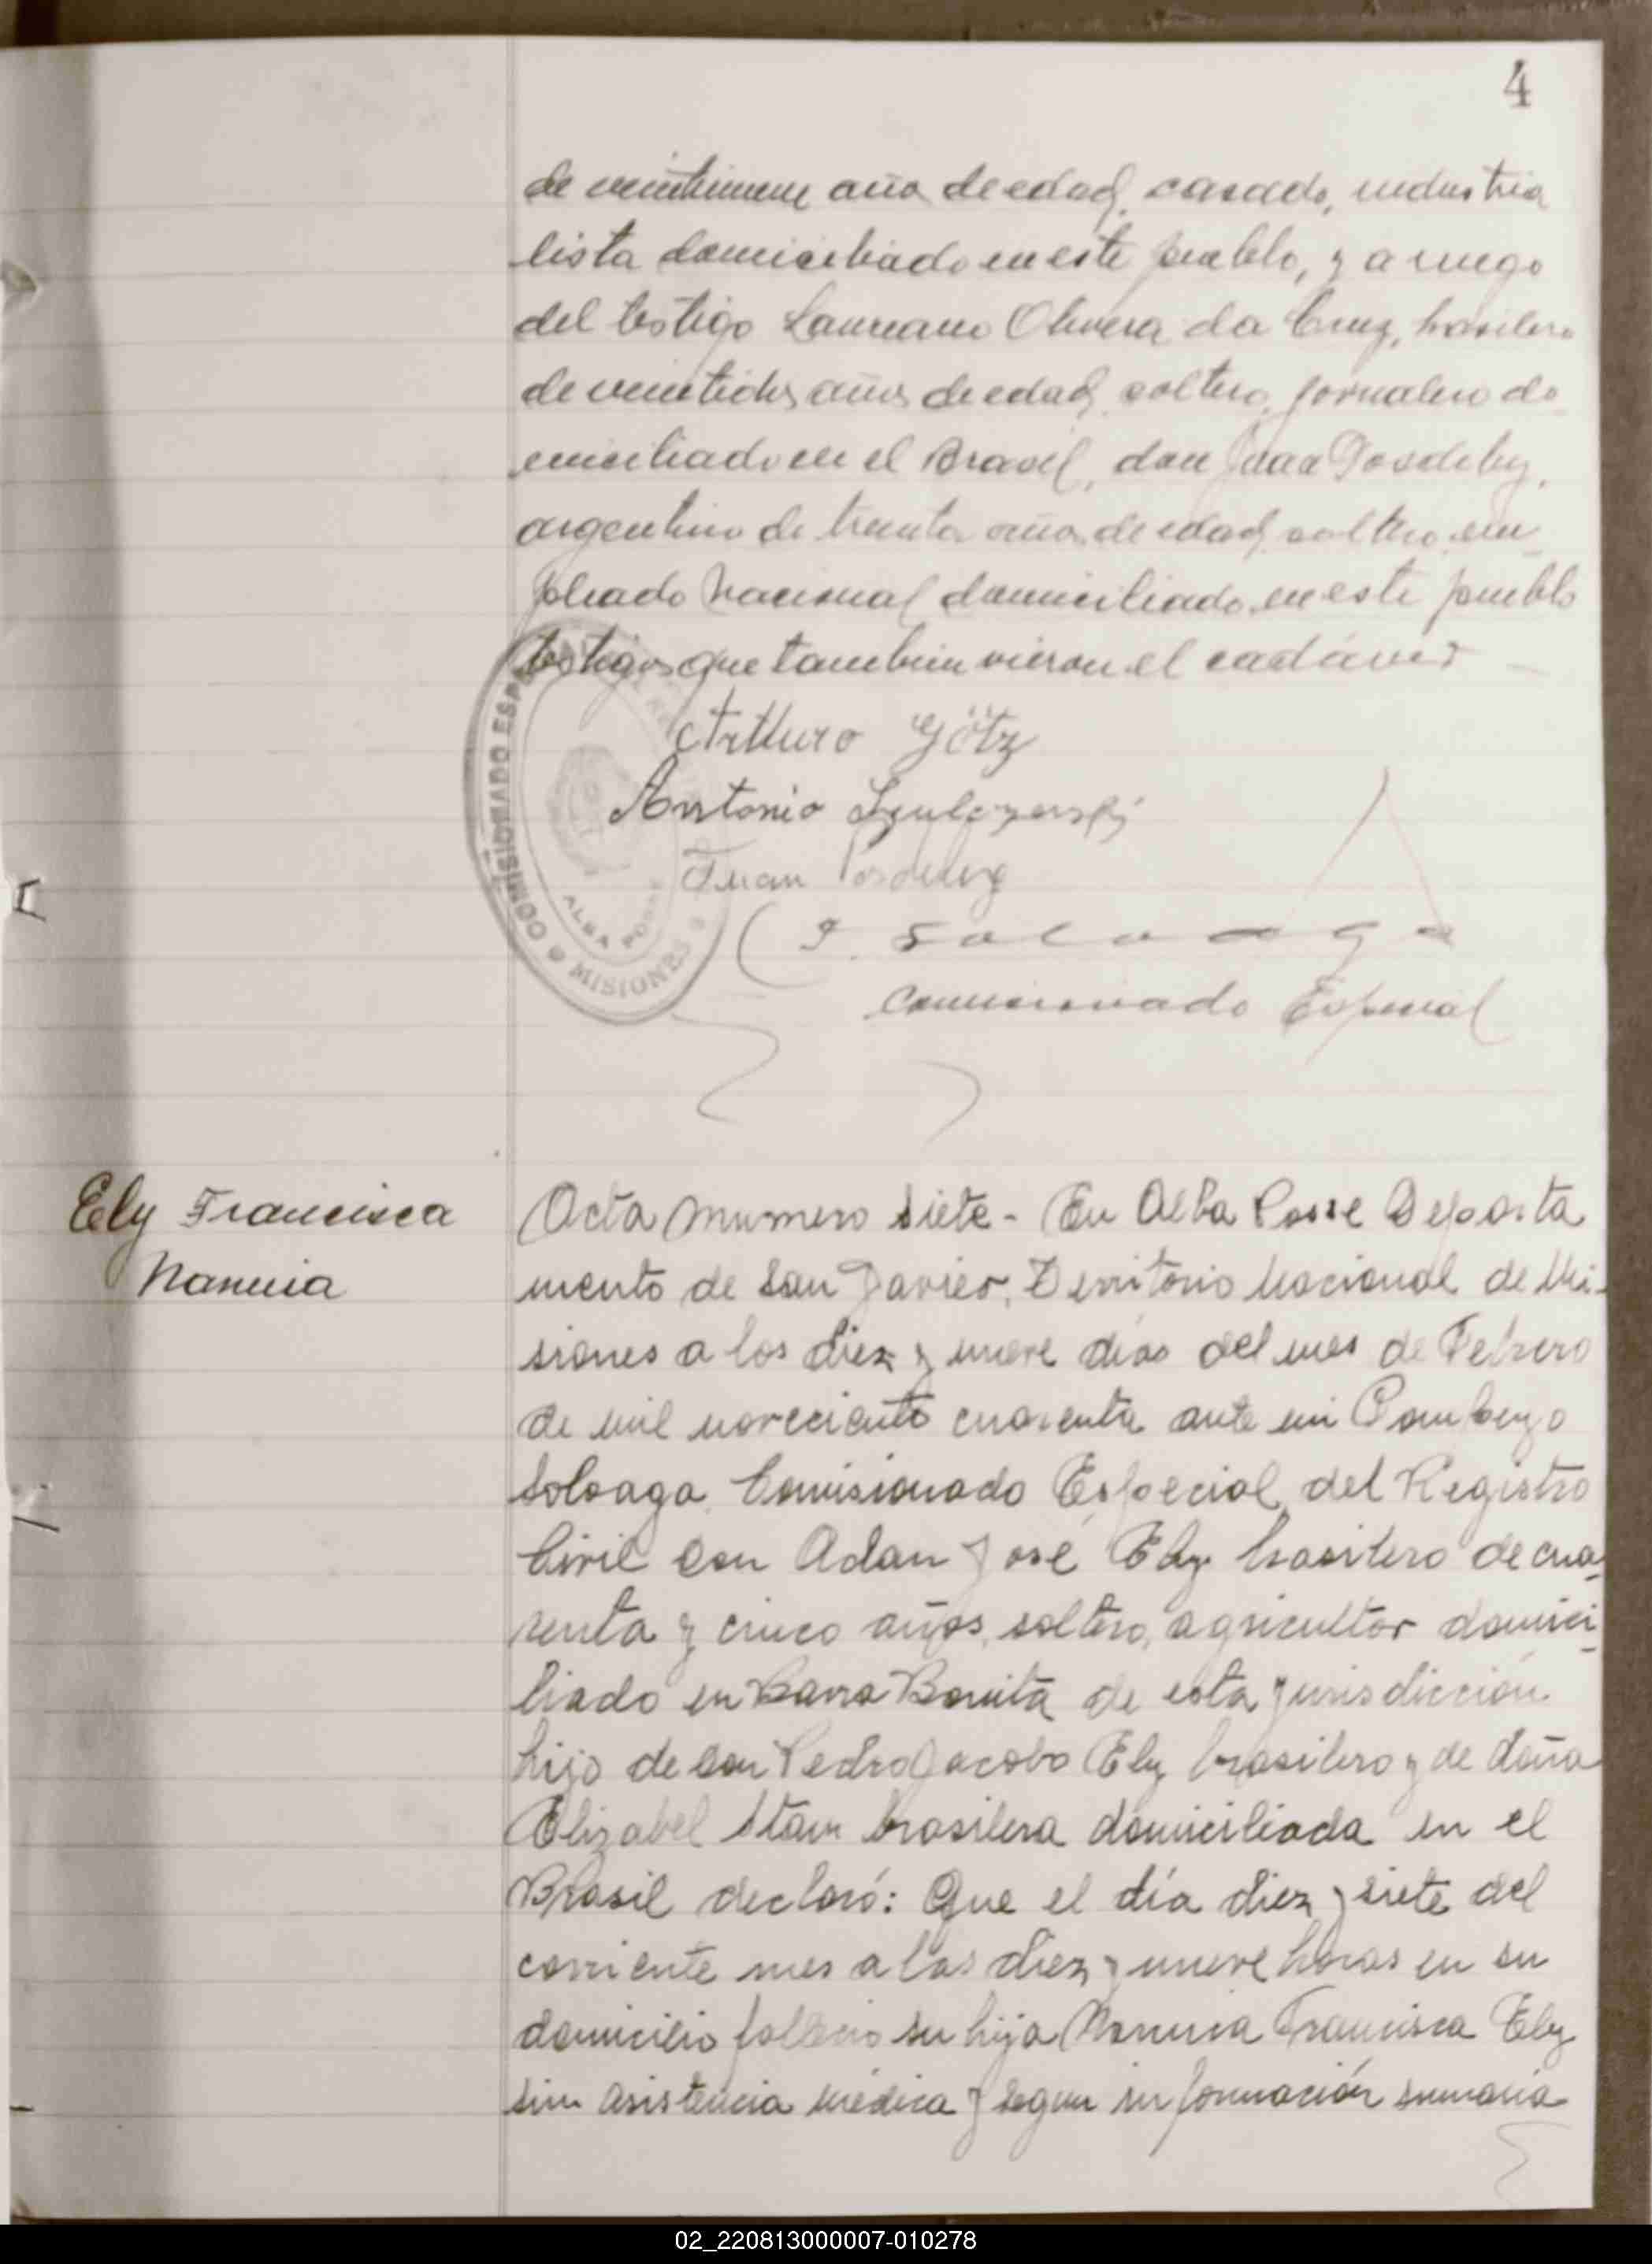 4
de veintinueve años de edad, casado, industria
lista domiciliado en este pueblo, y a ruego
del testigo Laureano Olivera da Cruz, brasilero
de veintidos años de edad, soltero, jornalero do
miciliado en el Brasil, don Juan Posdeley,
argentino de treinta años de edad soltero em
pleado Nacional domiciliado en este pueblo
testigos que tambien vieron el cadáver
Arthuro Götz
Antonio
Juan Posdeley
COMISIONADO ESPE
ALBA POSSE
MISIONES
P. Soloaga
Comisionado Especial
Ely Francisca
Namia
Acta Numero siete - En Alba Posse Departa
mento de San Javier, Territorio Nacional de Mi-
siones a los diez y nueve días del mes de Febrero
de mil novecientos cuarenta ante mi
Soloaga, Comisionado Especial del Registro
Civil don Adan José Ely brasilero de cua-
renta y cinco años, soltero, agricultor domici-
liado en Barra Bonita de esta jurisdicción
hijo de don Pedro Jacobo Ely brasilero y de doña
Elizabel Stam brasilera domiciliada en el
Brasil declaró: Que el día diez y siete del
corriente mes a las diez y nueve horas en su
domicilio fallecio su hija Namia Francisca Ely
sin asistencia médica y segun información sumaria
02_220813000007-010278